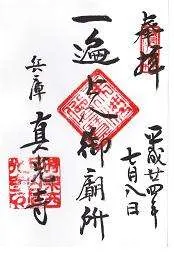 奉拝
平成廿四年
七月八日
一遍上人御廟所
兵庫
真光寺